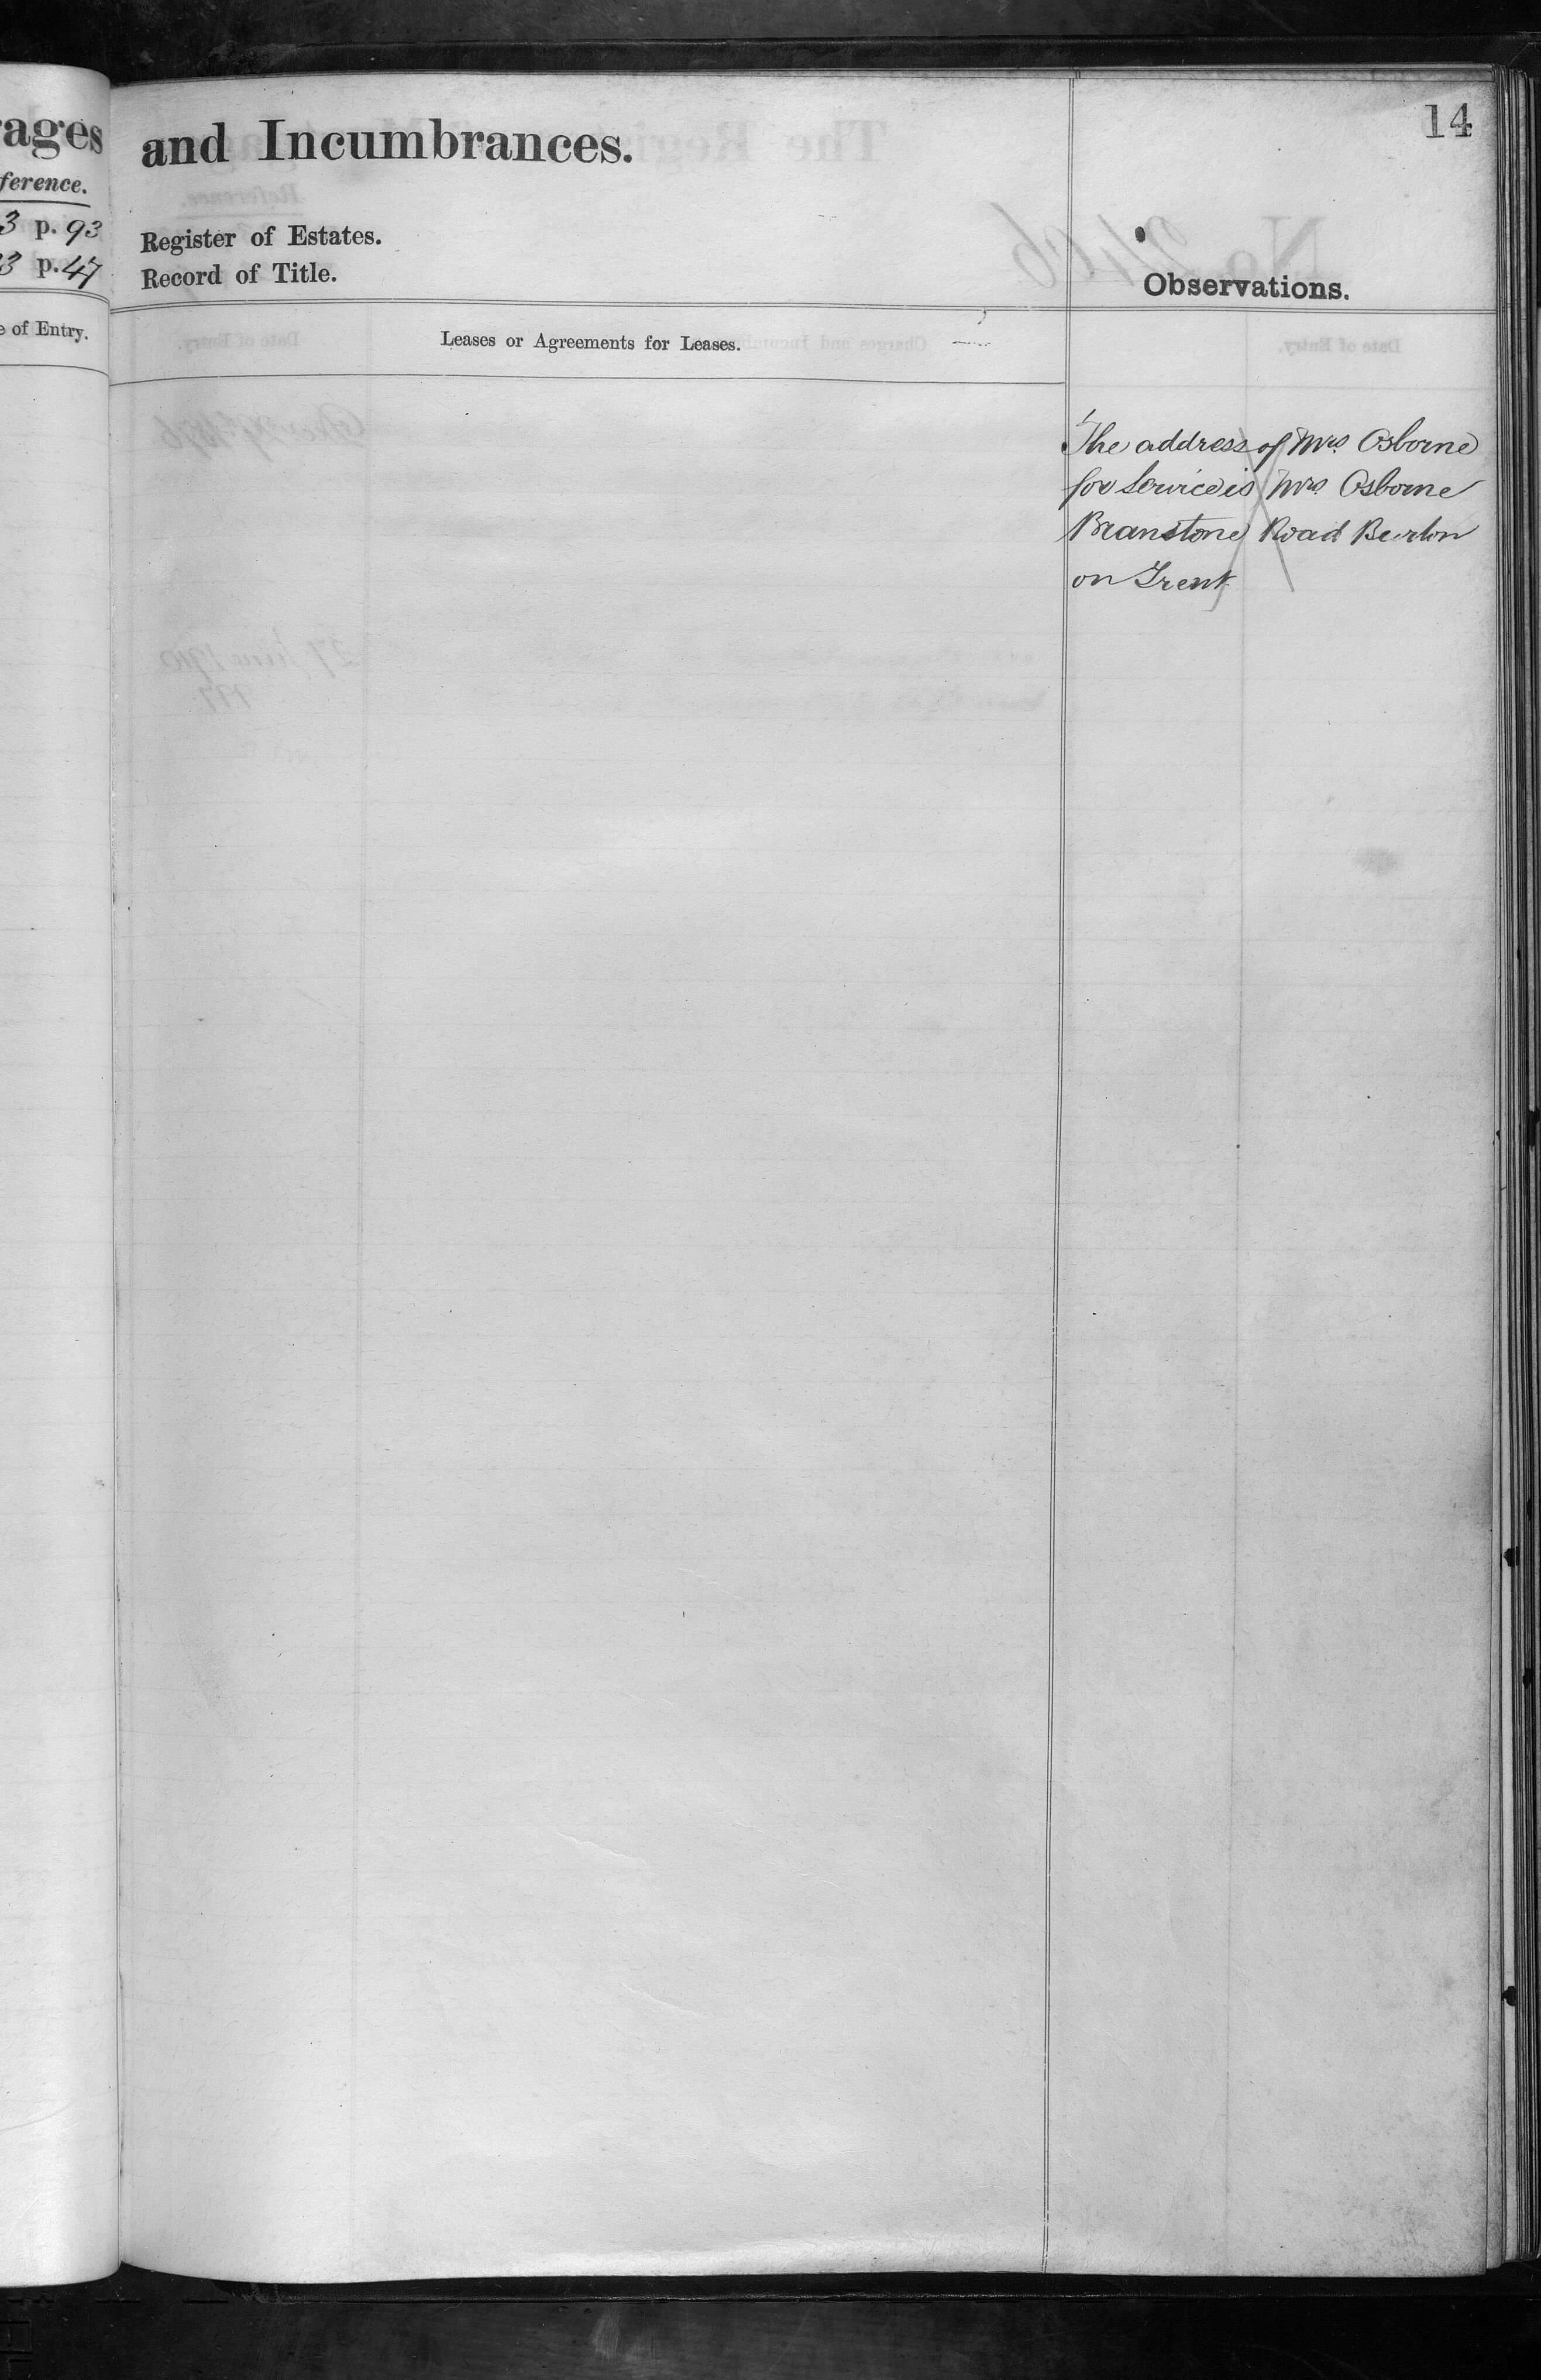 rages
ference.
3 p. 93
3 p. 47
e of Entry.
14
and Incumbrances.
Register of Estates.
Record of Title.
Observations.
Leases or Agreements for Leases.
The address of Mrs. Osborne
for Service is Mrs. Osborne
Branstone Road Burton
on Trent